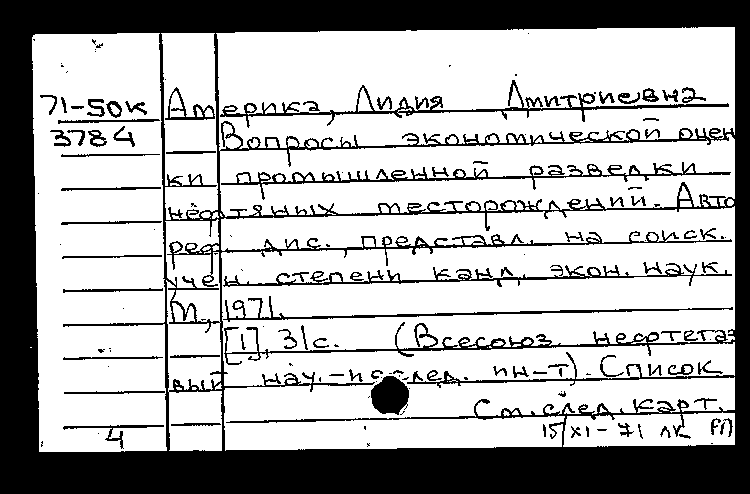 71-50к Америка, Лидия Дмитриевна
3784 Вопросы экономической оцен
ки промышленной разведки
нефтяных месторождений. Авто
реф. дис., представл. на соиск.
учен. степени канд. экон. наук.
М., 1971.
[1], 31с. (Всесоюз. нефтегаз
вый науч.-исслед. ин-т). Список
См. след. карт.
4 15/XI-71 лк РП